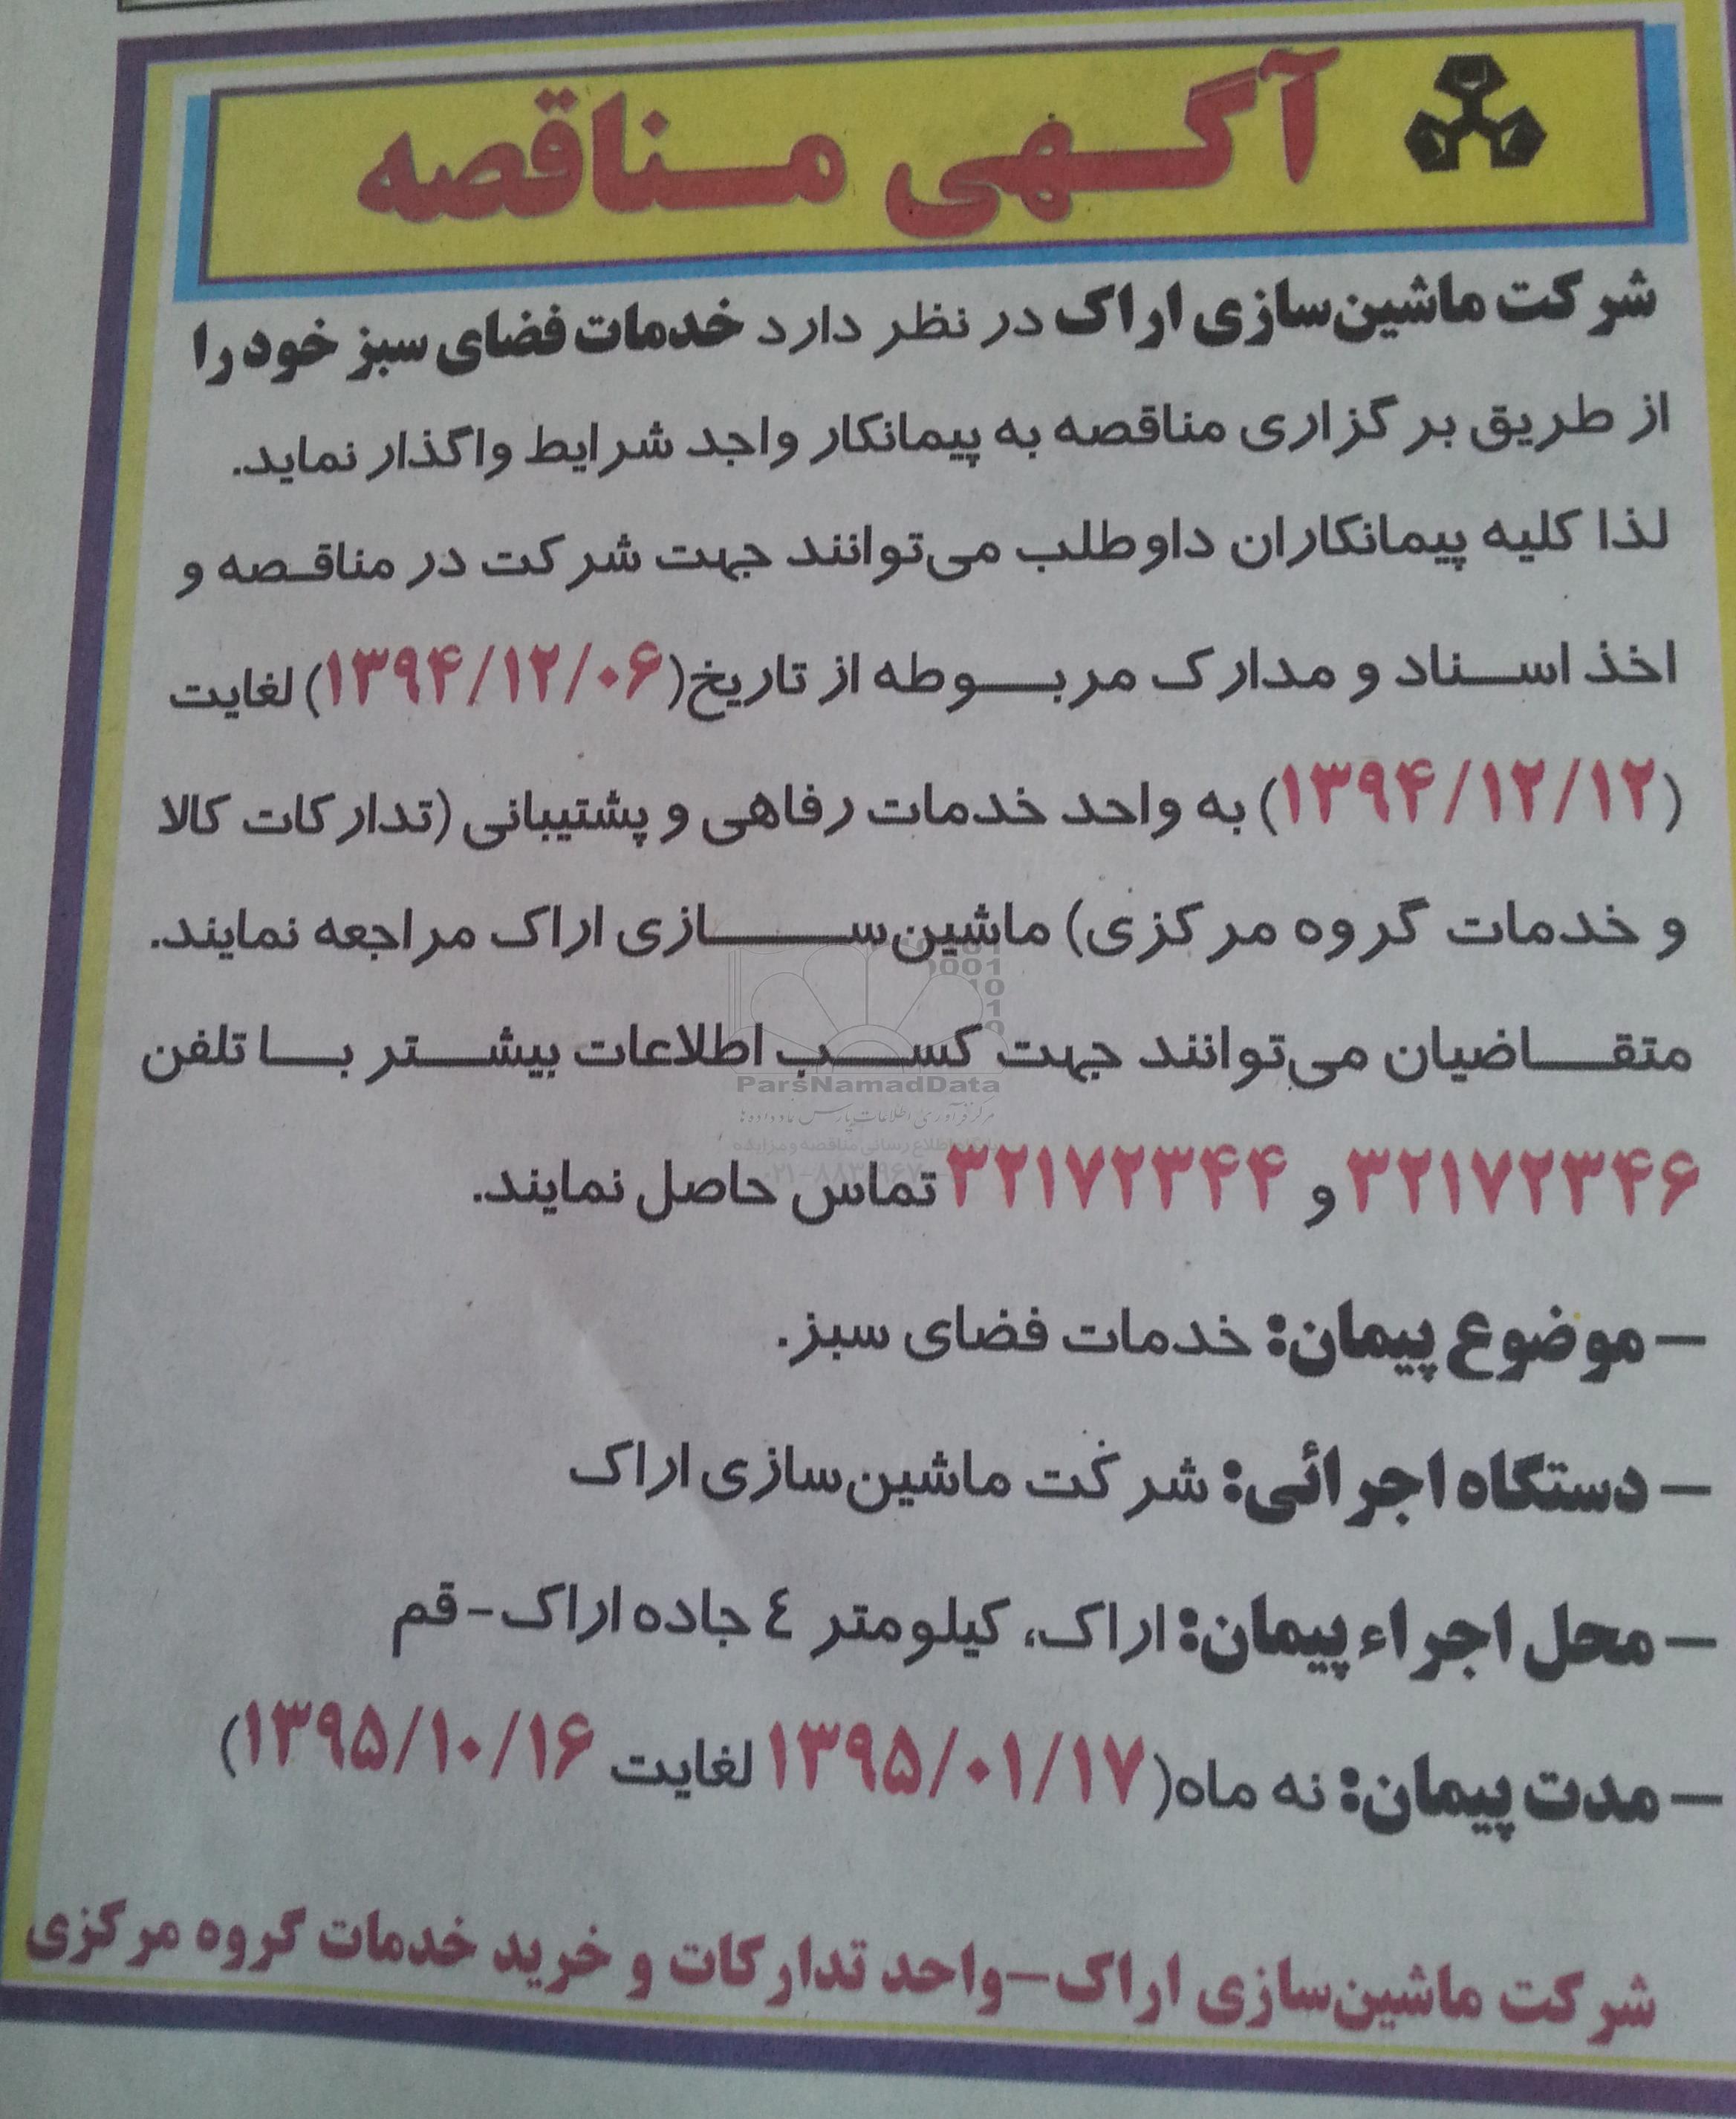 آگهی مناقصه
شرکت ماشین‌سازی اراک در نظر دارد خدمات فضای سبز خود را
از طریق برگزاری مناقصه به پیمانکار واجد شرایط واگذار نماید.
لذا کلیه پیمانکاران داوطلب می‌توانند جهت شرکت در مناقصه و
اخذ اسناد و مدارک مربوطه از تاریخ(۱۳۹۴/۱۲/۰۶) لغایت
(۱۳۹۴/۱۲/۱۲) به واحد خدمات رفاهی و پشتیبانی (تدارکات کالا
و خدمات گروه مرکزی) ماشین‌سازی اراک مراجعه نمایند.
متقاضیان می‌توانند جهت کسب اطلاعات بیشتر با تلفن
ParsNamadData
مرکز فرآوری اطلاعات پارس نماد داده‌ها
۳۲۱۷۲۳۴۶ و ۳۲۱۷۲۳۴۴ تماس حاصل نمایند.
– موضوع پیمان: خدمات فضای سبز.
– دستگاه اجرائی: شرکت ماشین‌سازی اراک
– محل اجراء پیمان: اراک، کیلومتر ٤ جاده اراک-قم
– مدت پیمان: نه ماه(۱۳۹۵/۰۱/۱۷ لغایت ۱۳۹۵/۱۰/۱۶)
شرکت ماشین‌سازی اراک–واحد تدارکات و خرید خدمات گروه مرکزی